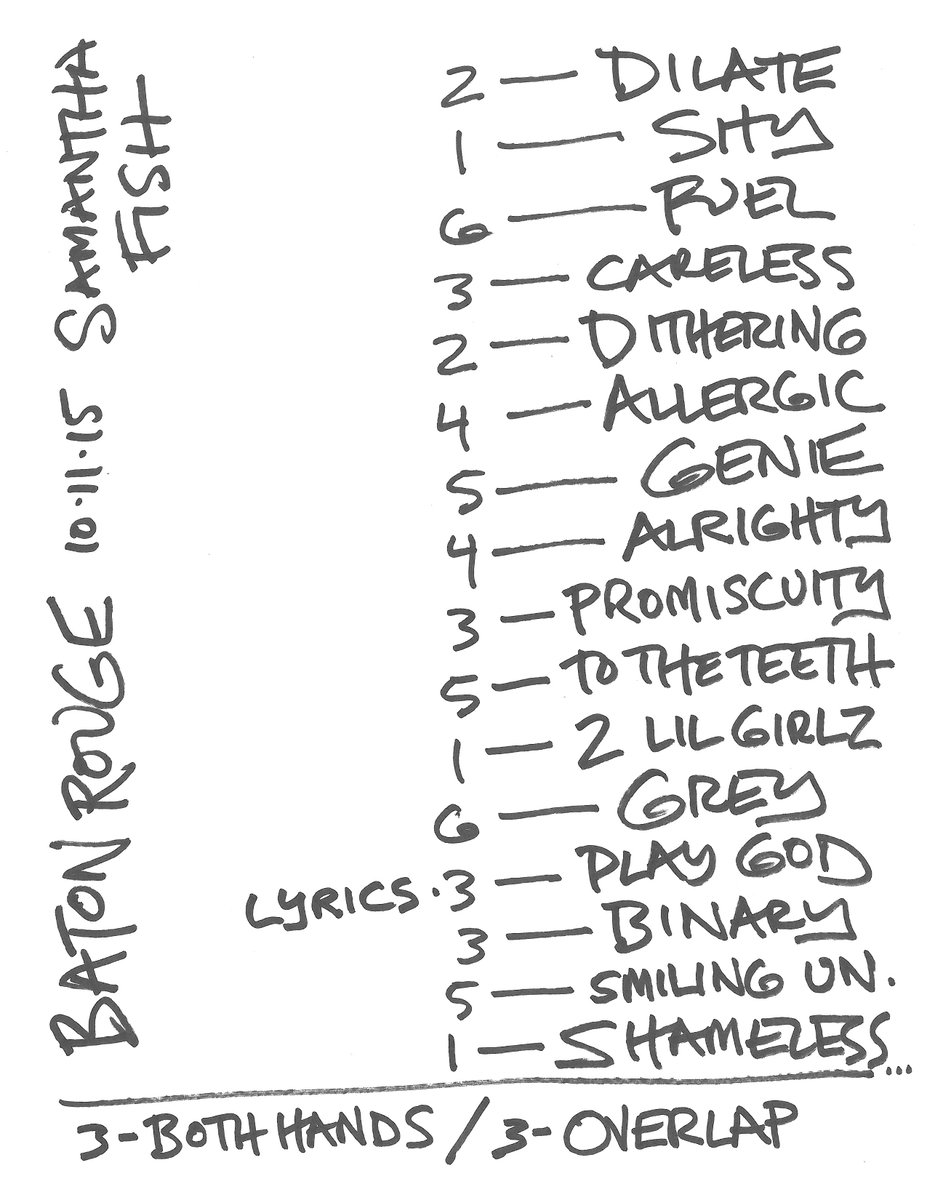 BATON ROUGE 10·11·15 SAMANTHA
FISH
2 — DILATE
1 — SHY
6 — FUEL
3 — CARELESS
2 — DITHERING
4 — ALLERGIC
5 — GENIE
4 — ALRIGHTY
3 — PROMISCUITY
5 — TO THE TEETH
1 — 2 LIL GIRLZ
6 — GREY
LYRICS · 3 — PLAY GOD
3 — BINARY
5 — SMILING UN.
1 — SHAMELESS...
3-BOTH HANDS / 3-OVERLAP